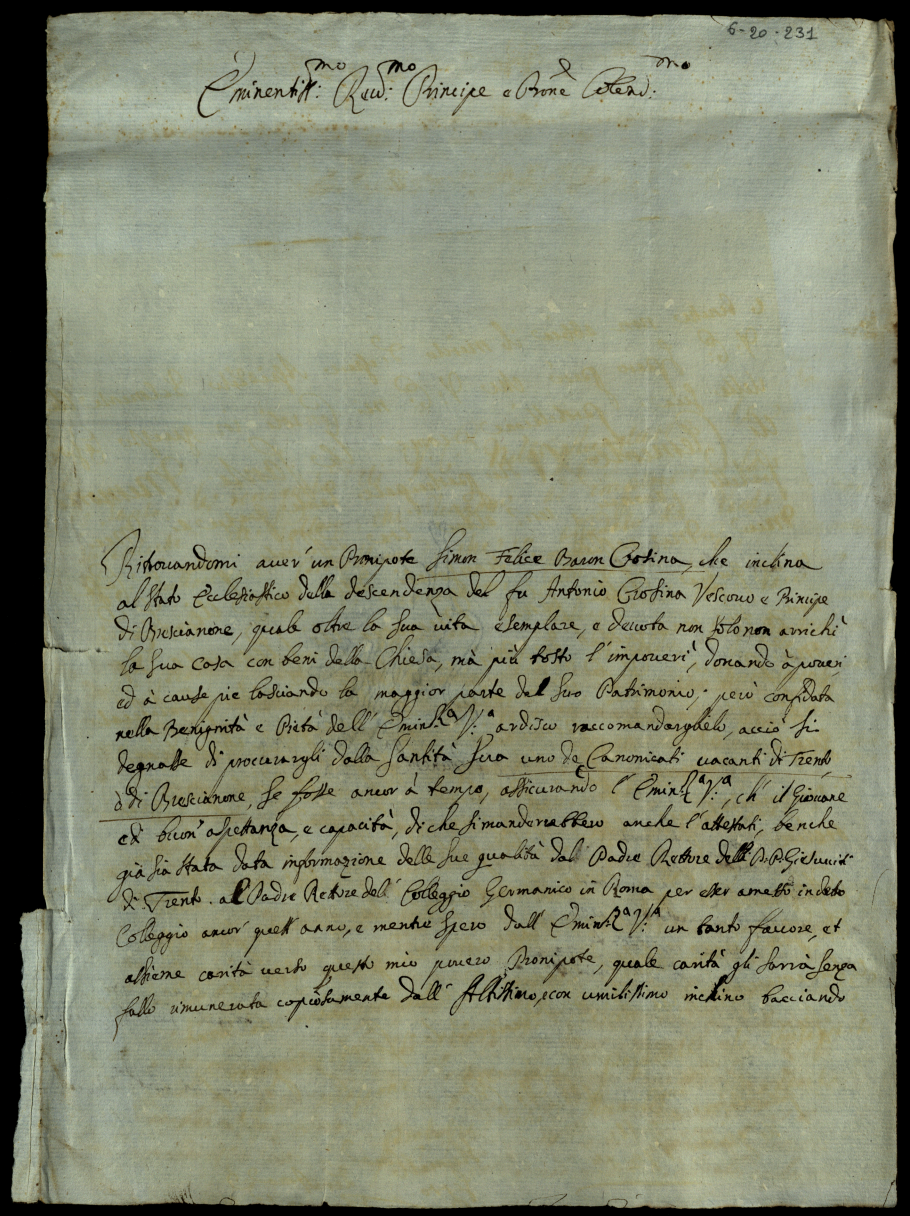 6-20-231
Eminentiss:mo Reu:mo Principe e Prone Colend:mo
Ritrouandomi auer' un Pronipote Simon Felice Baron Crosina, che inclina
al stato Ecclesiastico della descendenza del fu Antonio Crosina Vescouo e Principe
di Brescianone, quale oltre la sua uita esemplare, e deuota non solo non arrichì
la sua casa con beni della Chiesa, mà più tosto l'impouerì, donando à poueri,
ed à cause pie lasciando la maggior parte del suo Patrimonio; però confidata
nella Benignità e Pietà dell' Emin:za V:a ardisco raccomandarglielo, acciò si
degnasse di procurargli dalla Santità Sua uno de Canonicati uacanti di Trento,
ò di Brescianone, se fosse ancor à tempo, assicurando l' Emin:za V:a, ch' il Giouane
è di buon' aspettanza, e capacità, di che si manderebbero anche l'attestati, benche
già sia stata data informazione delle sue qualità dal Padre Rettore delli P.P. Giesuiti
di Trento al Padre Rettore dell' Colleggio Germanico in Roma per esser amesso in detto
Colleggio ancor quest' anno, e mentre spero dall' Emin:za V:a un tanto fauore, et
assieme carità uerso questo mio pouero Pronipote, quale carità gli sarrà senza
fallo rimunerata copiosamente dall' Altissimo, e con umilissimo inchino bacciando